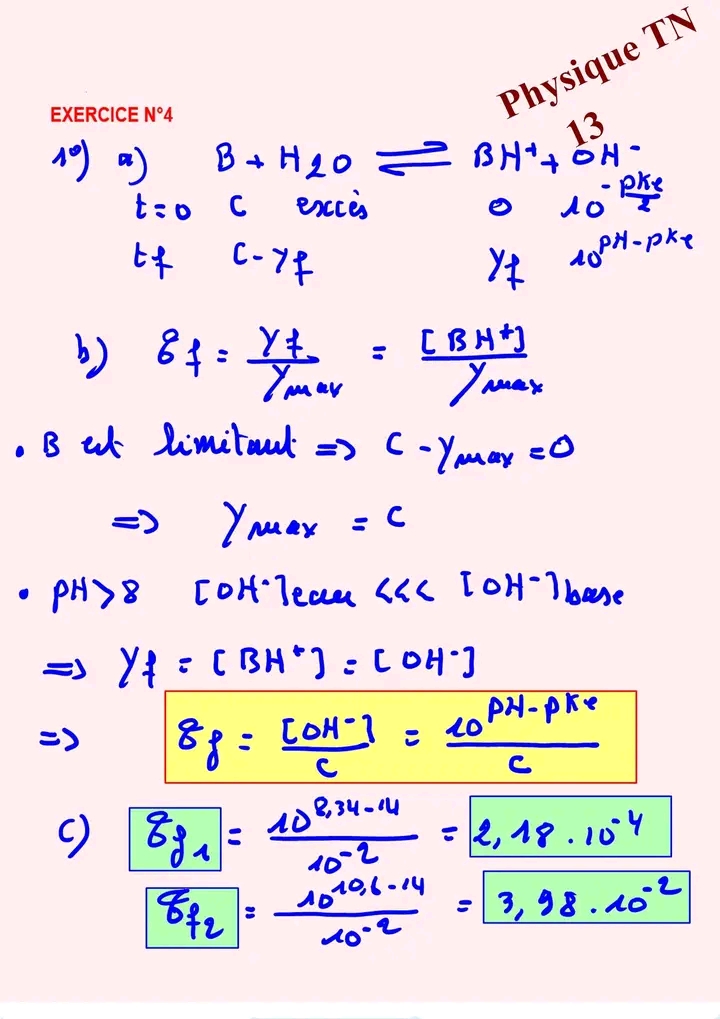 Physique TN
13
EXERCICE N°4
1°) a) B + H2O ⇌ BH+ + OH-
t=0 C excès 0 10^-pKe/2
tf C-yf yf 10^pH-pKe
b) τf = yf/ymax = [BH+]/ymax
• B est limitant => C - ymax = 0
=> ymax = C
• pH>8 [OH-]eau <<< [OH-]base
=> yf = [BH+] = [OH-]
=> τf = [OH-]/C = 10^pH-pKe/C
c) τf1 = 10^8,34-14/10^-2 = 2,18.10^-4
τf2 = 10^10,6-14/10^-2 = 3,98.10^-2